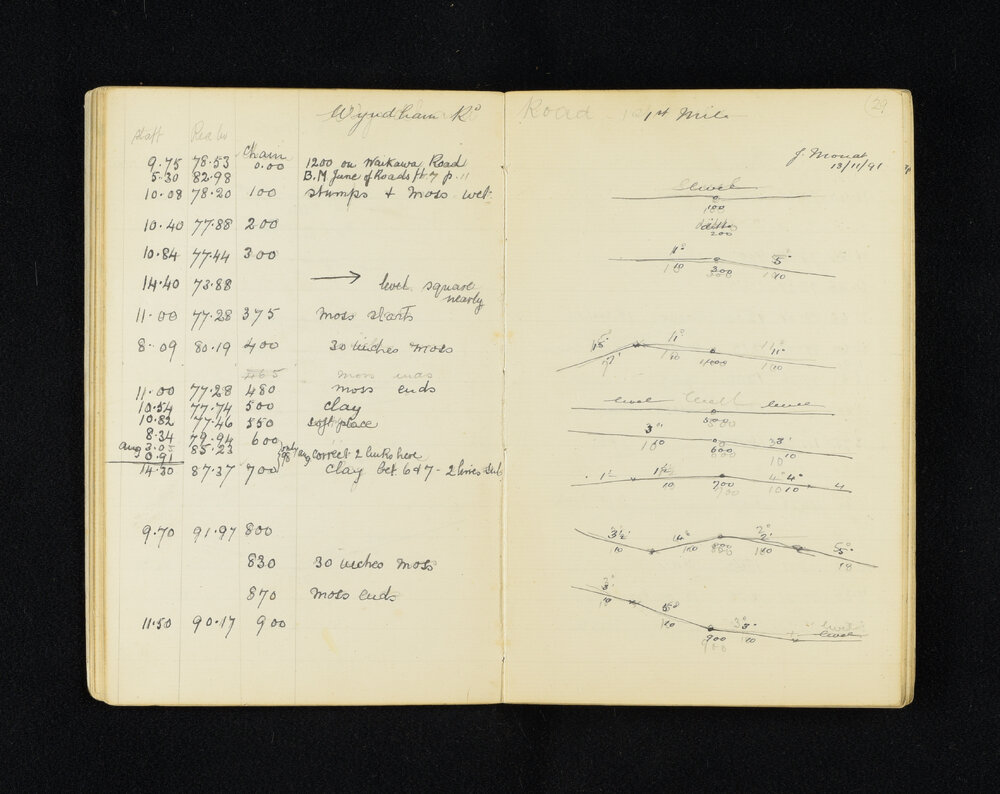 Wyndham Rd
Staff
Chain
9.75 78.53 0.00 1200 on Waikawa Road
5.30 82.98 B.M June of Roads
10.08 78.20 100 stumps + moss wet
10.40 77.88 200
10.84 77.44 300
14.40 73.88 level square
nearly
11.00 77.28 375 moss starts
8.09 80.19 400 30 inches moss
465 moss ends
11.00 77.28 480 moss ends
10.54 77.74 500 clay
10.82 77.46 550 soft place
8.34 79.94 600
ang 85.23 correct 2 links here
0.91
14.30 87.37 700 clay bet 6 & 7 - 2 lines
9.70 91.97 800
830 30 inches moss
870 moss ends
11.50 90.17 900
Road 1st Mile
29
J. Mouat
13/11/91
level
100
ditto
200
11° 5°
110 300 110
11°
110 400
level level level
500
3°
110 600 10
1° 4° 4
10 700 10 10
10 110 800 110 10
10
110 900 110 level